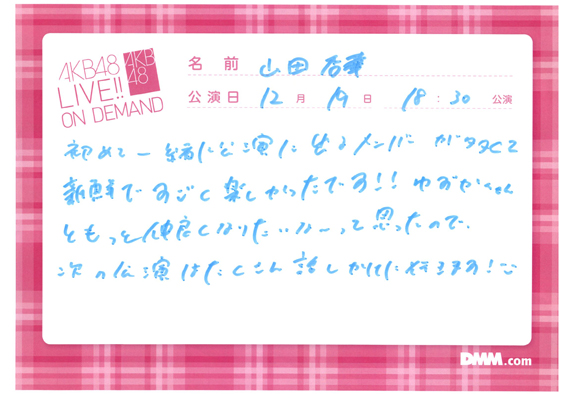 AKB48
LIVE!!
ON DEMAND
AKB
48
名 前 山田 杏華
公演日 12 月 19 日 18 : 30 公演
初めて一緒に公演に出るメンバーが多くて
新鮮ですごく楽しかったです!! ゆずかさん
ともっと仲良くなりたいなーって思ったので、
次の公演はたくさん話しかけに行きます!
DMM.com